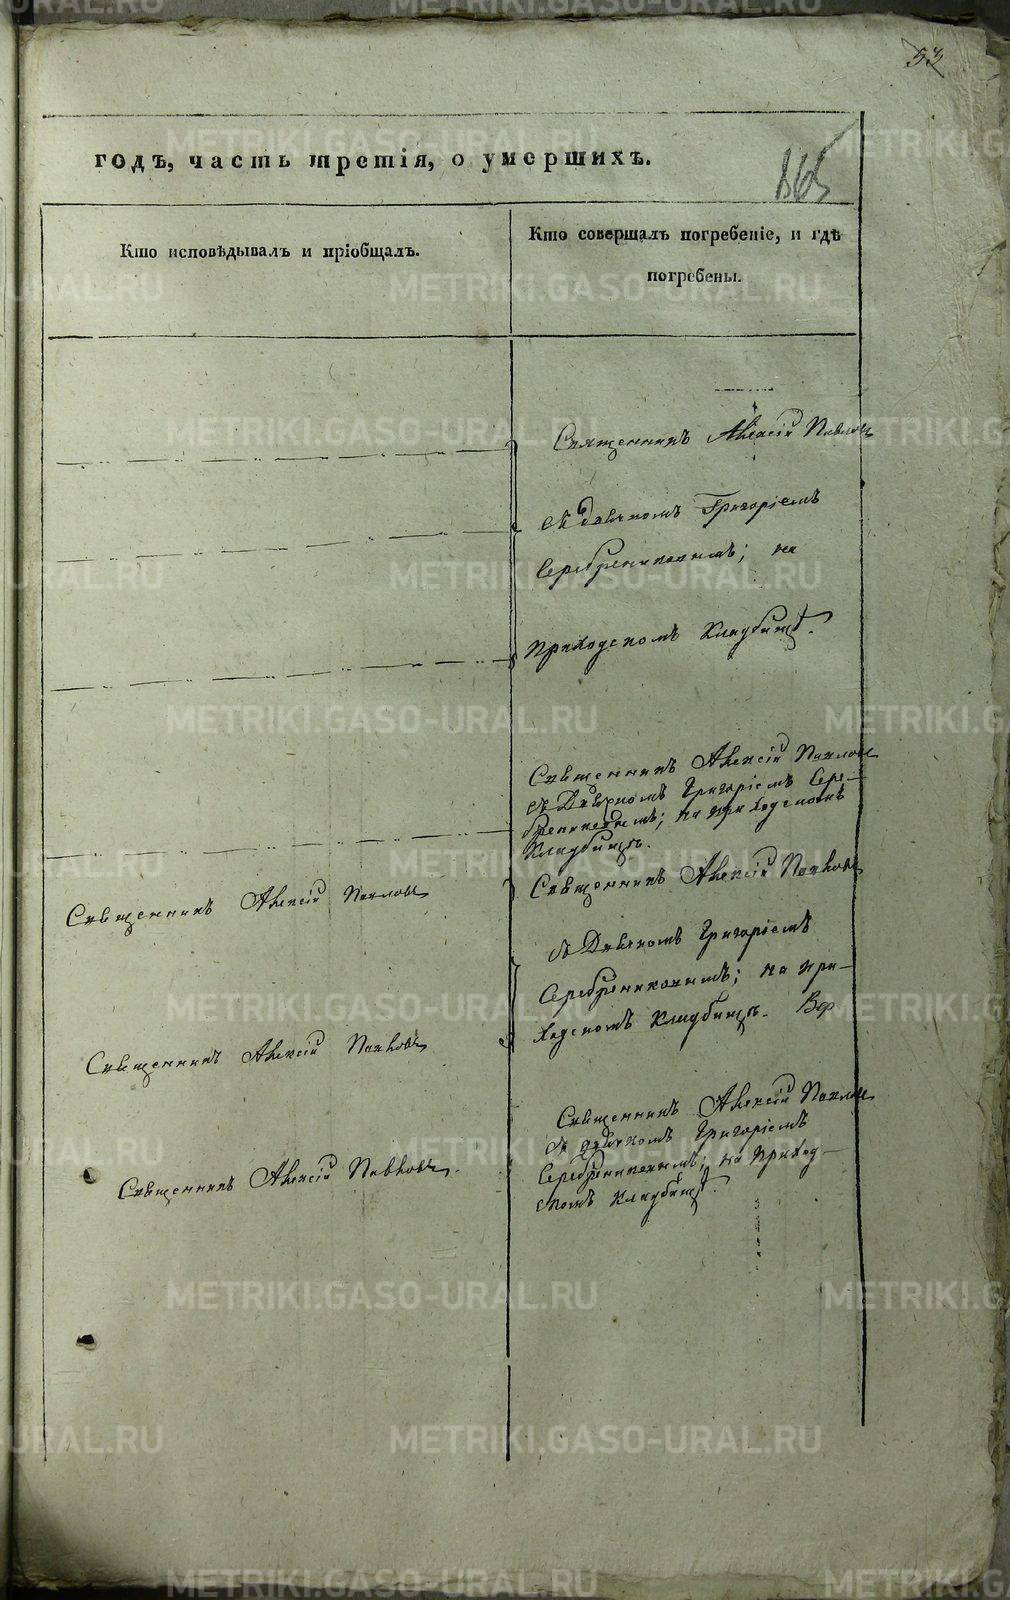 53
годъ, часть третія, о умершихъ.
865
Кто исповѣдывалъ и пріобщалъ.
Кто совершалъ погребеніе, и гдѣ
погребены.
Священникъ Алексій Павловъ
съ дьячкомъ Григоріемъ
Серебрениковымъ; на
приходскомъ кладбищѣ.
Священникъ Алексій Павловъ
съ Дьячкомъ Григоріемъ Сере-
брениковымъ; на приходскомъ
Кладбищѣ.
Священникъ Алексій Павловъ
Священникъ Алексій Павловъ
съ Дьячкомъ Григоріемъ
Серебрениковымъ; на при-
ходскомъ Кладбищѣ.
Священникъ Алексій Павловъ
Священникъ Алексій Павловъ
съ дьячкомъ Григоріемъ
Серебрениковымъ; на приход-
скомъ Кладбищѣ.
Священникъ Алексій Павловъ.
METRIKI.GASO-URAL.RU